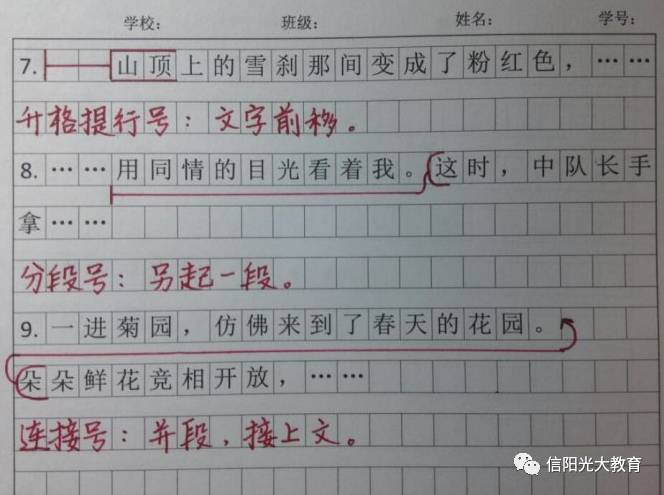 学校： 班级： 姓名： 学号：
7. 山顶上的雪刹那间变成了粉红色，……
升格提行号：文字前移。
8. ……用同情的目光看着我。这时，中队长手
拿……
分段号：另起一段。
9. 一进菊园，仿佛来到了春天的花园。
朵朵鲜花竞相开放，……
连接号：并段，接上文。
信阳光大教育